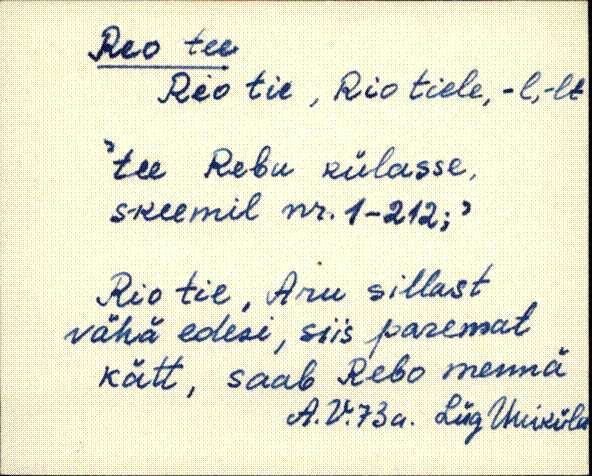 Reo tee
Reo tie, Rio tiele, -l, -lt
"tee Rebu külasse,
skeemil nr. 1-212;"
Rio tie, Aru sillast
vähä edesi, siis paremat
kätt, saab Rebo mennä
A.V. 73 a. Lüg Uniküla